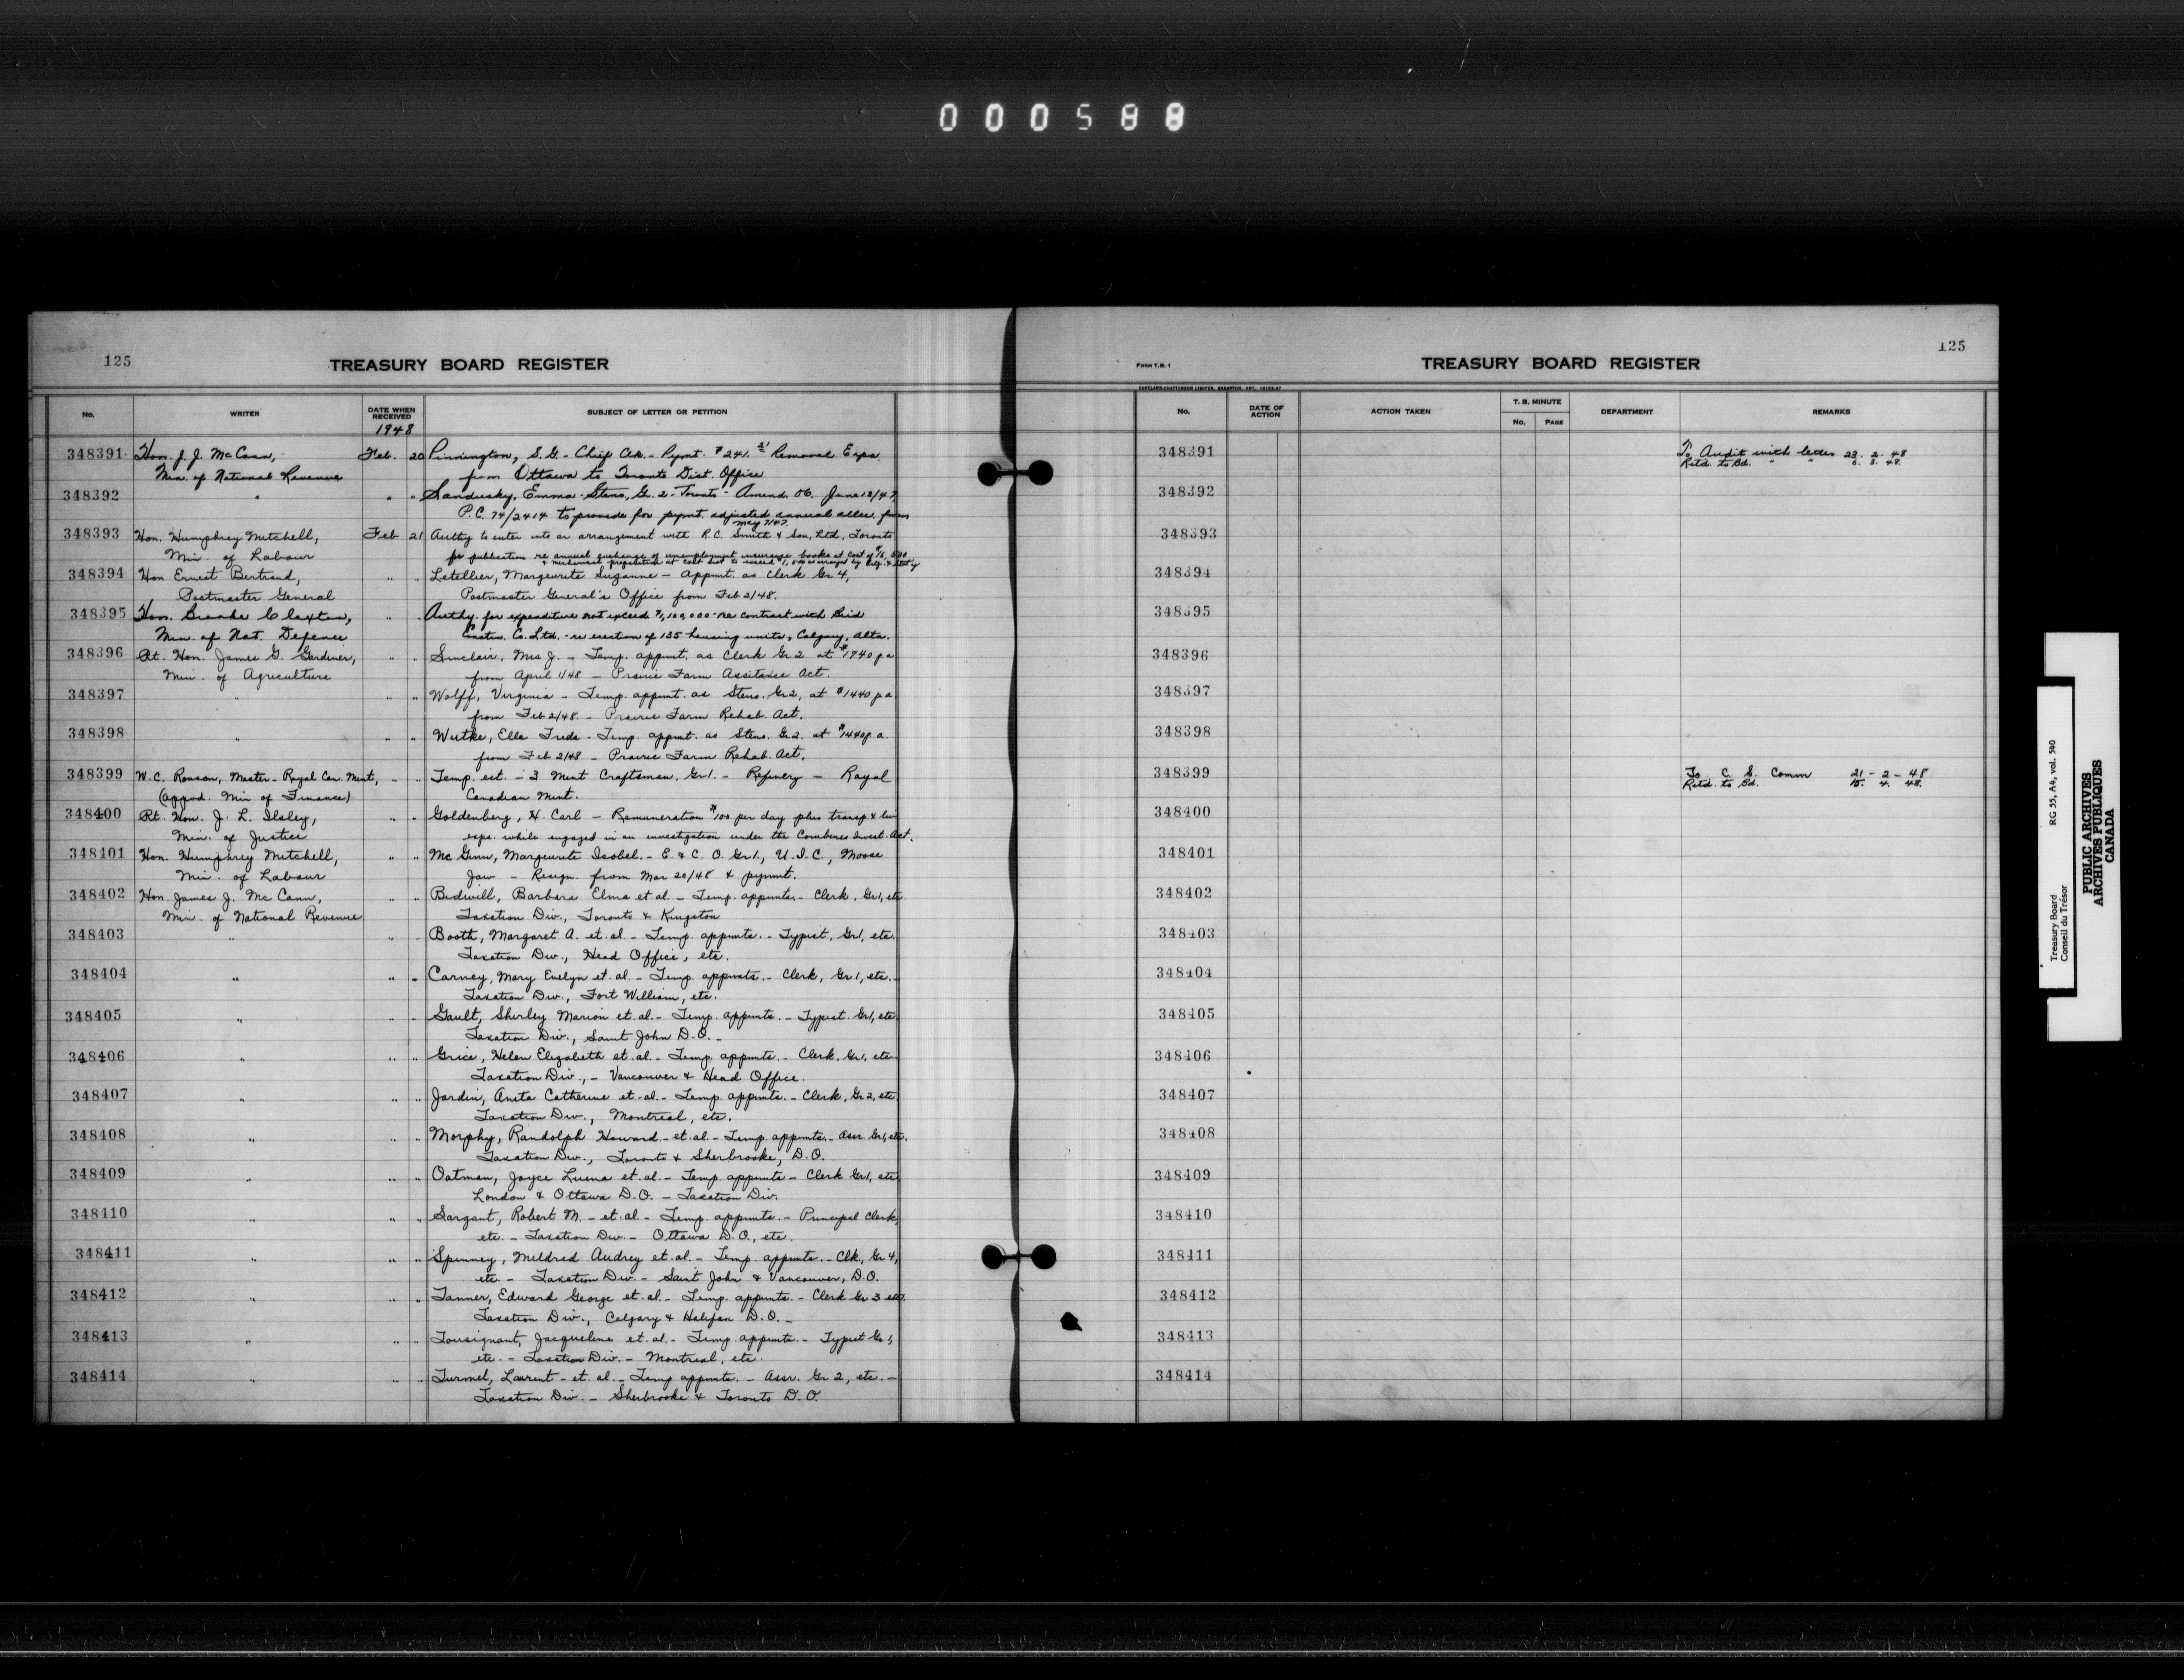 000588
125
TREASURY BOARD REGISTER
No.
WRITER
DATE WHEN RECEIVED
1948
SUBJECT OF LETTER OR PETITION
348391 Hon. J. J. McCann, Feb. 20 Pinnington, S.G. - Chief Clk. - Pymt. $241.21 Removal Exps.
Min. of National Revenue from Ottawa to Toronto Dist. Office
348392 " " " Sandusky, Emma - Steno, Gr. 2 - Toronto - Amend. O.C. June 13/47,
P.C. 74/2414 to provide for pymt. adjusted annual allce. from
May 7/47.
348393 Hon. Humphrey Mitchell, Feb 21 Authy to enter into an arrangement with R.C. Smith & Son, Ltd, Toronto
Min. of Labour for publication re annual exchange of unemployment insurance books at cost of
& mechanical preparation at cost not to exceed
348394 Hon Ernest Bertrand, " " Letellier, Marguerite Suzanne - Appmt. as Clerk Gr 4,
Postmaster General Postmaster General's Office from Feb 2/48.
348395 Hon. Brooke Claxton, " " Authy. for expenditure not exceed $1,100,000 - re contract with Bird
Min. of Nat. Defence Constn. Co. Ltd. - re erection of 135 housing units, Calgary, Alta.
348396 Rt. Hon. James G. Gardiner, " " Sinclair, Mrs J. - Temp. appmt. as Clerk Gr 2 at $1740 p a
Min. of Agriculture from April 1/48 - Prairie Farm Assitance Act.
348397 " " " Wolff, Virginia - Temp. appmt. as Steno. Gr 2, at $1440 p a
from Feb 2/48. - Prairie Farm Rehab. Act.
348398 " " " Wutke, Ella Frieda - Temp. appmt. as Steno. Gr. 2. at $1440 p. a.
from Feb 2/48 - Prairie Farm Rehab. Act.
348399 W.C. Ronson, Master - Royal Can. Mint, " " Temp. est. - 3 Mint Craftsman, Gr 1. - Refinery - Royal
(appvd. Min of Finance) Canadian Mint.
348400 Rt. Hon. J. L. Ilsley, " " Goldenberg, H. Carl - Remuneration $100 per day plus transp. & liv
Min. of Justice exps. while engaged in an investigation under the Combines Invest. Act.
348401 Hon. Humphrey Mitchell, " " Mc Ginn, Marguerite Isobel. - E. & C. O. Gr 1., U.I.C., Moose
Min. of Labour Jaw - Resign. from Mar 20/48 & pymnt.
348402 Hon. James J. Mc Cann, " " Bidwill, Barbara Elma et al - Temp. appmts. - Clerk, Gr 1, etc.
Min. of National Revenue Taxation Div., Toronto & Kingston
348403 " " " Booth, Margaret A. et. al. - Temp. appmts. - Typist, Gr 1, etc.
Taxation Div., Head Office, etc.
348404 " " " Carney, Mary Evelyn et. al. - Temp. appmts. - Clerk, Gr 1, etc. -
Taxation Div., Fort William, etc.
348405 " " " Gault, Shirley Marion et. al. - Temp. appmts. - Typist. Gr 1, etc
Taxation Div., Saint John D.O. -
348406 " " " Grice, Helen Elizabeth et. al. - Temp. appmts. - Clerk, Gr 1, etc
Taxation Div., - Vancouver & Head Office.
348407 " " " Jardin, Anita Catherine et. al. - Temp. appmts. - Clerk, Gr 2, etc.
Taxation Div., Montreal, etc.
348408 " " " Morphy, Randolph Howard - et. al. - Temp. appmts. - Assr. Gr 1, etc.
Taxation Div., Toronto & Sherbrooke, D.O.
348409 " " " Oatman, Joyce Luena et. al. - Temp. appmts - Clerk Gr 1, etc
London & Ottawa D.O. - Taxation Div.
348410 " " " Sargant, Robert M. - et. al. - Temp. appmts. - Principal Clerk,
etc. - Taxation Div. - Ottawa D.O., etc.
348411 " " " Spinney, Mildred Audrey et. al. - Temp. appmts. - Clk., Gr 4,
etc - Taxation Div. - Saint John & Vancouver, D.O.
348412 " " " Tanner, Edward George et. al. - Temp. appmts. - Clerk Gr 3 etc.
Taxation Div., Calgary & Halifax D.O. -
348413 " " " Tousignant, Jacqueline et. al. - Temp. appmts. - Typist Gr 1,
etc. - Taxation Div. - Montreal, etc.
348414 " " " Turmel, Laurent - et. al. - Temp appmts. - Assr. Gr 2, etc. -
Taxation Div. - Sherbrooke & Toronto D.O.
125
FORM T.B. 1
TREASURY BOARD REGISTER
No.
DATE OF ACTION
ACTION TAKEN
T. B. MINUTE
No. PAGE
DEPARTMENT
REMARKS
348391 To Audit with letter 23. 2. 48
Retd. to Bd. " " 6. 3. 48.
348392
348393
348394
348395
348396
348397
348398
348399 To C. S. Comm 21 - 2 - 48
Retd. to Bd. 15. 4. 48.
348400
348401
348402
348403
348404
348405
348406
348407
348408
348409
348410
348411
348412
348413
348414
Treasury Board RG 55, A4, vol. 540
Conseil du Trésor
PUBLIC ARCHIVES
ARCHIVES PUBLIQUES
CANADA